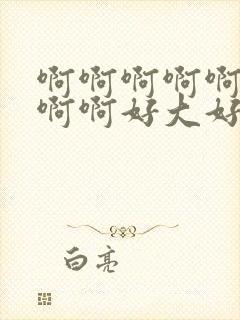 啊啊啊啊啊
啊啊好大好
白亮